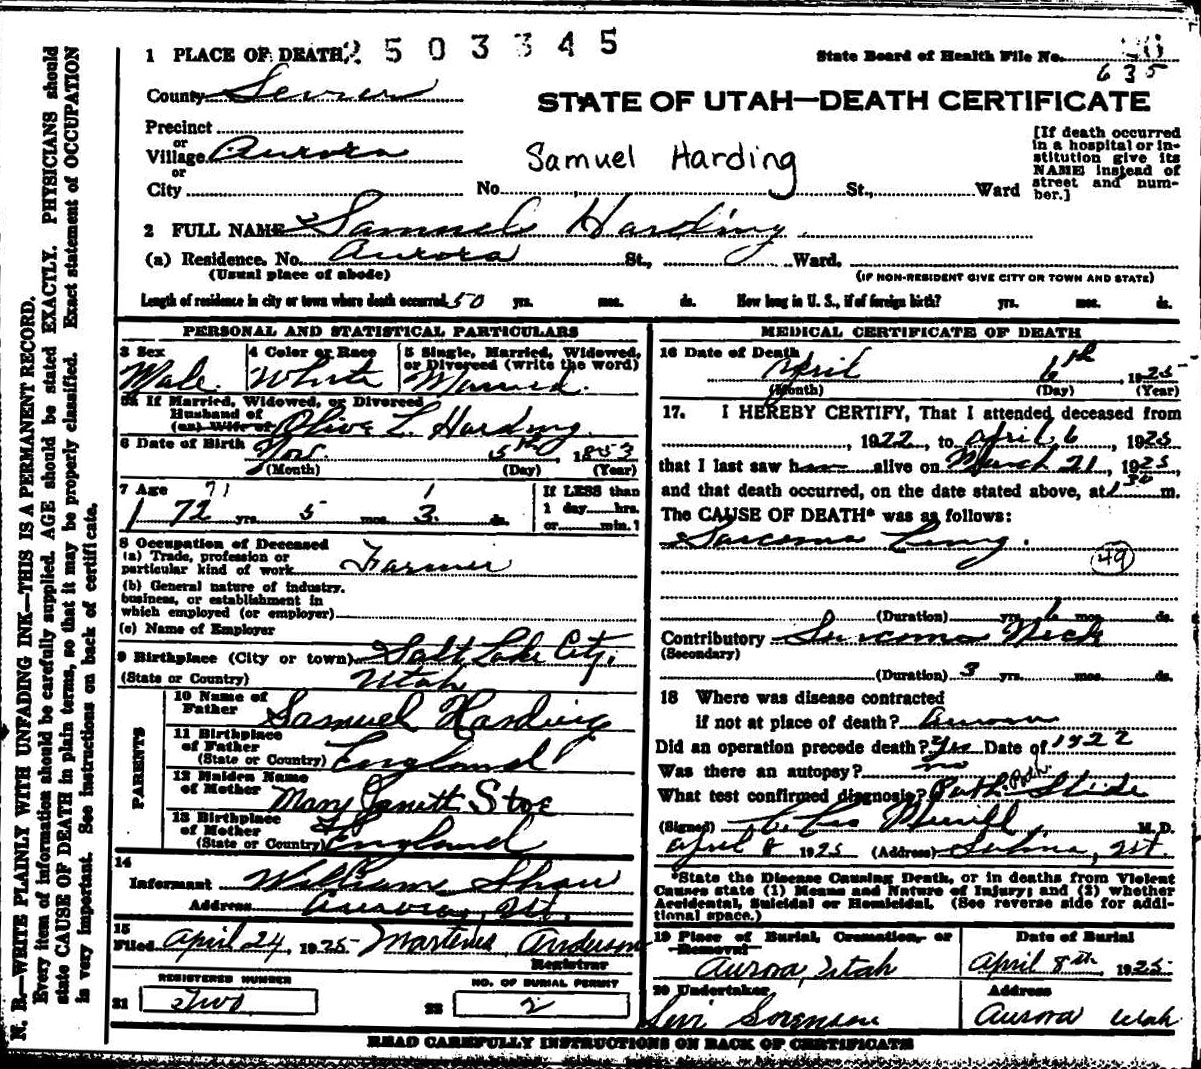 1 PLACE OF DEATH 2503345
State Board of Health File No. 26
635
County Sevier
STATE OF UTAH—DEATH CERTIFICATE
Precinct
or
Village Aurora
or
City No. St., Ward
Samuel Harding
[If death occurred in a hospital or institution give its NAME instead of street and number.]
2 FULL NAME Samuel Harding
(a) Residence. No. Aurora St., Ward,
(Usual place of abode)
(IF NON-RESIDENT GIVE CITY OR TOWN AND STATE)
Length of residence in city or town where death occurred 50 yrs. mos. ds. How long in U. S., if of foreign birth? yrs. mos. ds.
PERSONAL AND STATISTICAL PARTICULARS
3 Sex
Male
4 Color or Race
White
5 Single, Married, Widowed, or Divorced (write the word)
Married.
5a If Married, Widowed, or Divorced
Husband of
(or) Wife of Olive L. Harding.
6 Date of Birth Nov. 5th, 1853
(Month) (Day) (Year)
7 Age 71 1
72 yrs. 5 mos. 3. ds.
If LESS than
1 day hrs.
or min.
8 Occupation of Deceased
(a) Trade, profession or
particular kind of work Farmer
(b) General nature of industry.
business, or establishment in
which employed (or employer)
(c) Name of Employer
9 Birthplace (City or town) Salt Lake City,
(State or Country) Utah
PARENTS
10 Name of
Father Samuel Harding
11 Birthplace
of Father
(State or Country) England
12 Maiden Name
of Mother Mary Janett Stoe
13 Birthplace
of Mother
(State or Country) England
14
Informant William Shaw
Address Aurora, Ut.
15
Filed April 24, 1925 Martenus Anderson
Registrar
REGISTERED NUMBER
21 Two
NO. OF BURIAL PERMIT
22 2
MEDICAL CERTIFICATE OF DEATH
16 Date of Death
April 6th, 1925
(Month) (Day) (Year)
17. I HEREBY CERTIFY, That I attended deceased from
, 1922, to April 6, 1925
that I last saw h alive on March 21, 1925,
and that death occurred, on the date stated above, at 1 30 m.
The CAUSE OF DEATH* was as follows:
Sarcoma Lung.
49
(Duration) yrs. 6 mos. ds.
Contributory Sarcoma Neck
(Secondary)
(Duration) 3 yrs. mos. ds.
18 Where was disease contracted
if not at place of death? Aurora
Did an operation precede death? Yes Date of 1922
Was there an autopsy? no
What test confirmed diagnosis? Path. Slide
(Signed) M. D.
April 8 1925 (Address) Salina, Ut.
*State the Disease Causing Death, or in deaths from Violent
Causes state (1) Means and Nature of Injury; and (2) whether
Accidental, Suicidal or Homicidal. (See reverse side for addi-
tional space.)
19 Place of Burial, Cremation, or
Removal
Aurora, Utah
Date of Burial
April 8th, 1925
20 Undertaker
Levi Sorenson
Address
Aurora Utah
READ CAREFULLY INSTRUCTIONS ON BACK OF CERTIFICATE
N. B.—WRITE PLAINLY WITH UNFADING INK—THIS IS A PERMANENT RECORD.
Every item of information should be carefully supplied. AGE should be stated EXACTLY. PHYSICIANS should
state CAUSE OF DEATH in plain terms, so that it may be properly classified. Exact statement of OCCUPATION
is very important. See instructions on back of certificate.